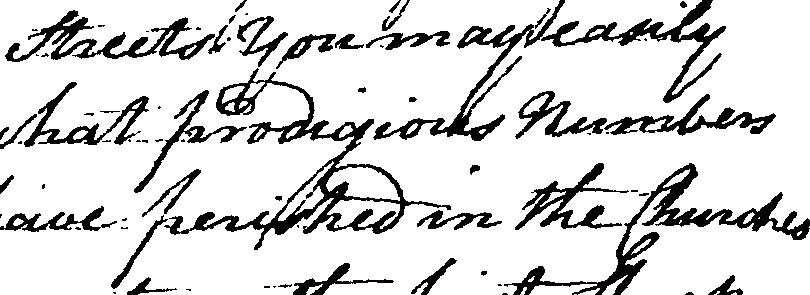 Streets you may easily
what prodigious Numbers
have perished in the Churches